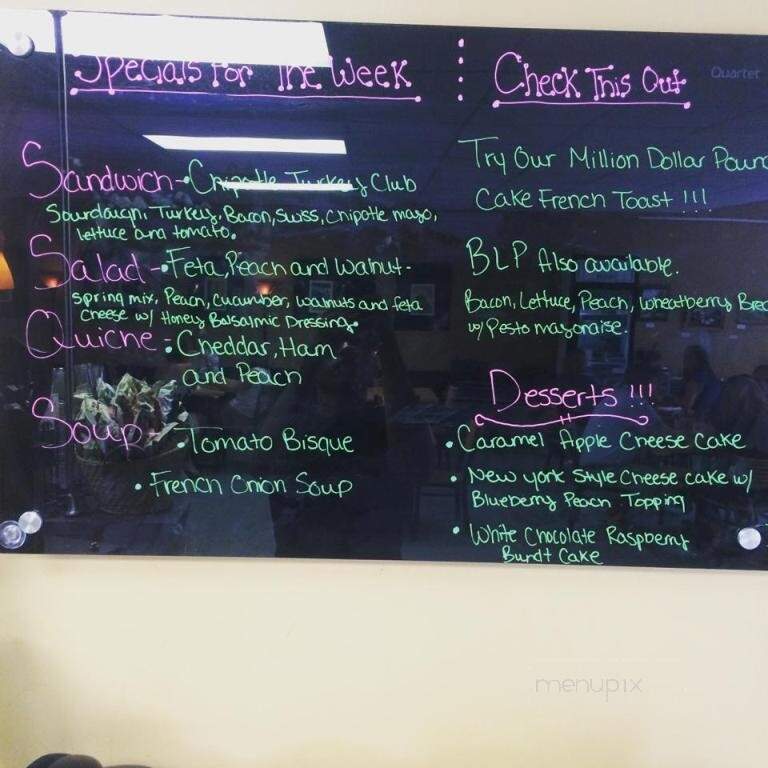 Specials For The Week
Sandwich - • Chipotle Turkey Club
Sourdough, Turkey, Bacon, Swiss, Chipotle mayo,
lettuce and tomato.
Salad - • Feta, Peach and Walnut -
spring mix, Peach, cucumber, walnuts and feta
cheese w/ Honey Balsalmic Dressing.
Quiche - • Cheddar, Ham
and Peach
Soup • Tomato Bisque
• French Onion Soup
Check This Out
Try Our Million Dollar Pound
Cake French Toast !!!
BLP Also available.
Bacon, Lettuce, Peach, Wheatberry Bread
w/ Pesto mayonaise.
Desserts !!!
• Caramel Apple Cheese Cake
• New York Style Cheese cake w/
Blueberry Peach Topping
• White Chocolate Raspberry
Bundt Cake
Quartet
menupix